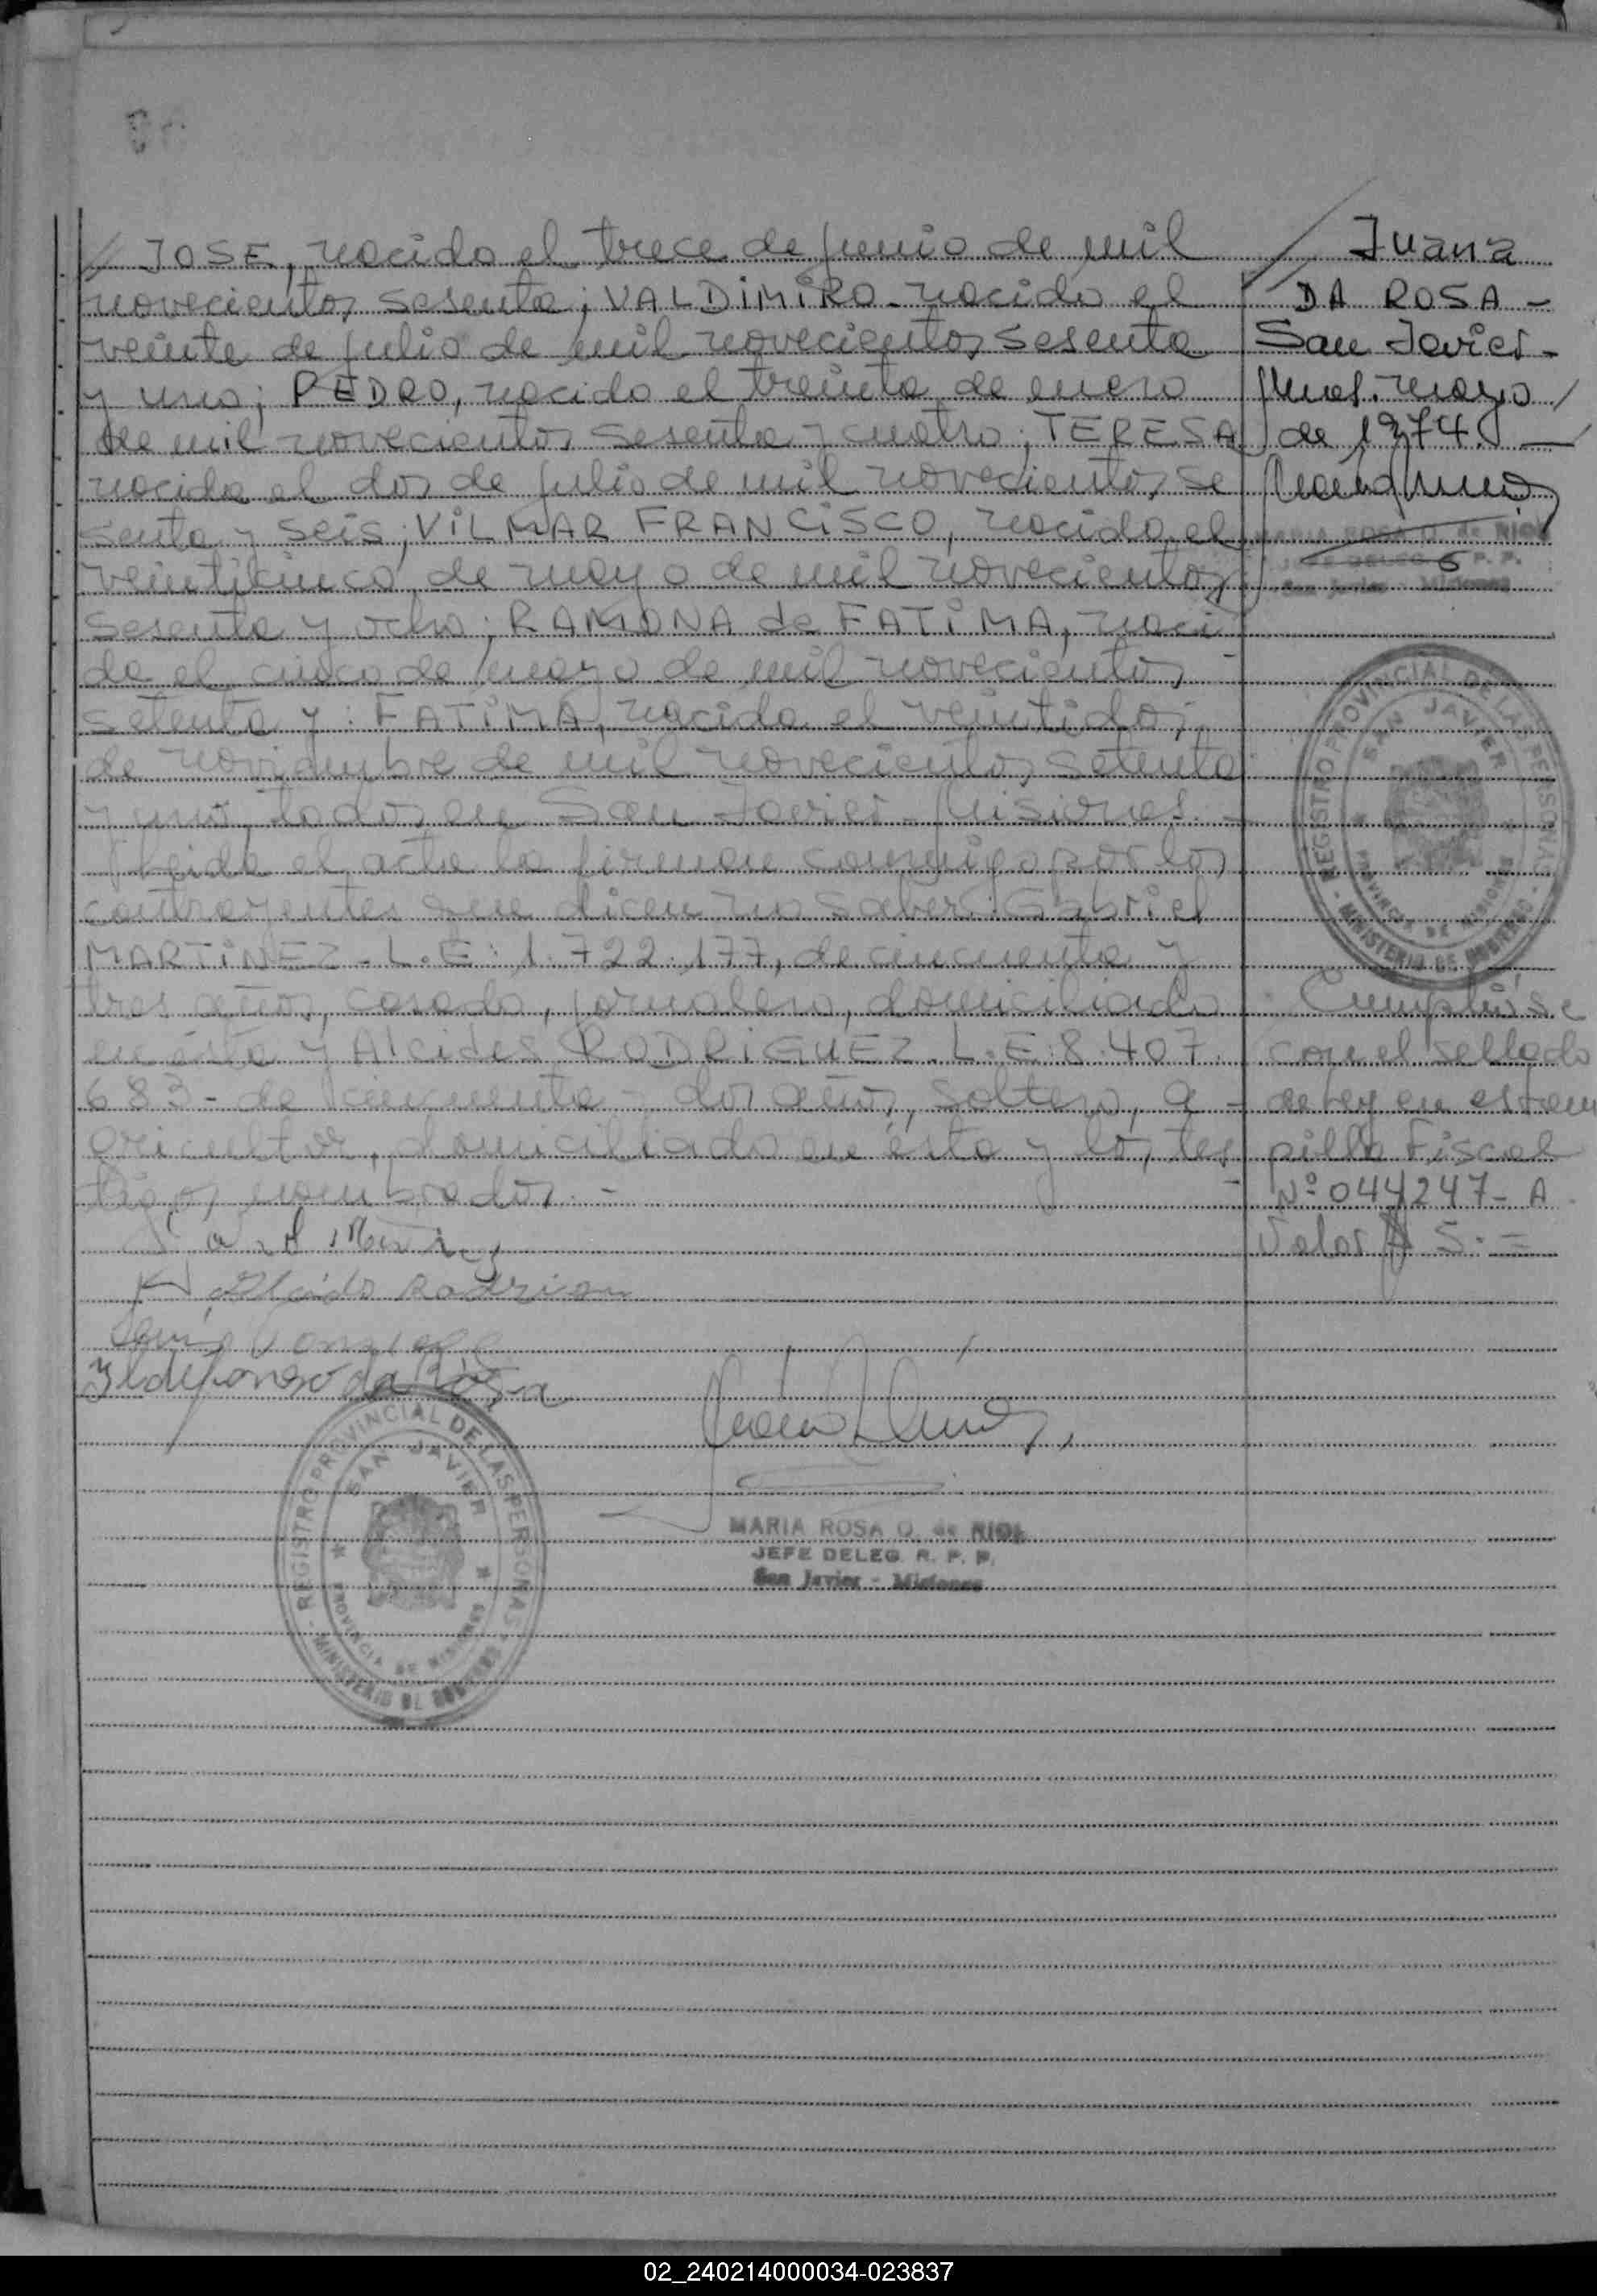 JOSE, nacido el trece de junio de mil
novecientos sesenta; VALDIMIRO - nacido el
veinte de julio de mil novecientos sesenta
y uno; PEDRO, nacido el treinta de enero
de mil novecientos sesenta y cuatro; TERESA
nacida el dos de julio de mil novecientos se
senta y seis; VILMAR FRANCISCO, nacido el
veinticinco de mayo de mil novecientos
sesenta y ocho; RAMONA de FATIMA, naci
da el cinco de mayo de mil novecientos -
setenta y: FATIMA, nacida el veintidos
de noviembre de mil novecientos setenta
y uno, todos en San Javier - Misiones. -
Leida el acta la firman conmigo por los
contrayentes que dicen no saber: Gabriel
MARTINEZ - L.E: 1.722.177, de cincuenta y
tres años, casado, jornalero, domiciliado
en ésta y Alcides RODRIGUEZ. L.E: 8.407.
683 - de cincuenta y dos años, soltero, a -
gricultor, domiciliado en ésta y los tes -
tigos nombrados. -
Rodrigu
Ildefonso da Rosa
REGISTRO PROVINCIAL DE LAS PERSONAS
SAN JAVIER
PROVINCIA DE MISIONES
MINISTERIO DE GOBIERNO
MARIA ROSA O. de RIOL
JEFE DELEG. R. P. P.
San Javier - Misiones
Juana
DA ROSA -
San Javier -
Mnes. mayo
de 1974. -
MARIA ROSA O. de RIOL
JEFE DELEG. R. P. P.
San Javier - Misiones
REGISTRO PROVINCIAL DE LAS PERSONAS
SAN JAVIER
PROVINCIA DE MISIONES
MINISTERIO DE GOBIERNO
Cumplióse
con el sellado
de ley en estam
pilla Fiscal
Nº 044247 - A.
Valor $ 5. =
02_240214000034-023837